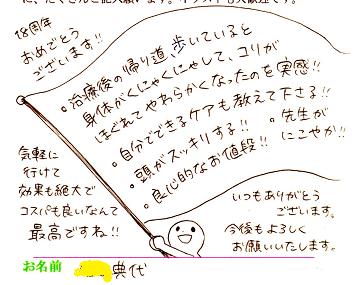 18周年
おめでとう
ございます!!
・治療後の帰り道、歩いていると
身体がくにゃくにゃして、コリが
ほぐれてやわらかくなったのを実感!!
・自分でできるケアも教えて下さる!!
・頭がスッキリする!!
・良心的なお値段!!
・先生が
にこやか!!
気軽に
行けて
効果も絶大で
コスパも良いなんて
最高ですね!!
いつもありがとう
ございます。
今後もよろしく
お願いいたします。
お名前 典代